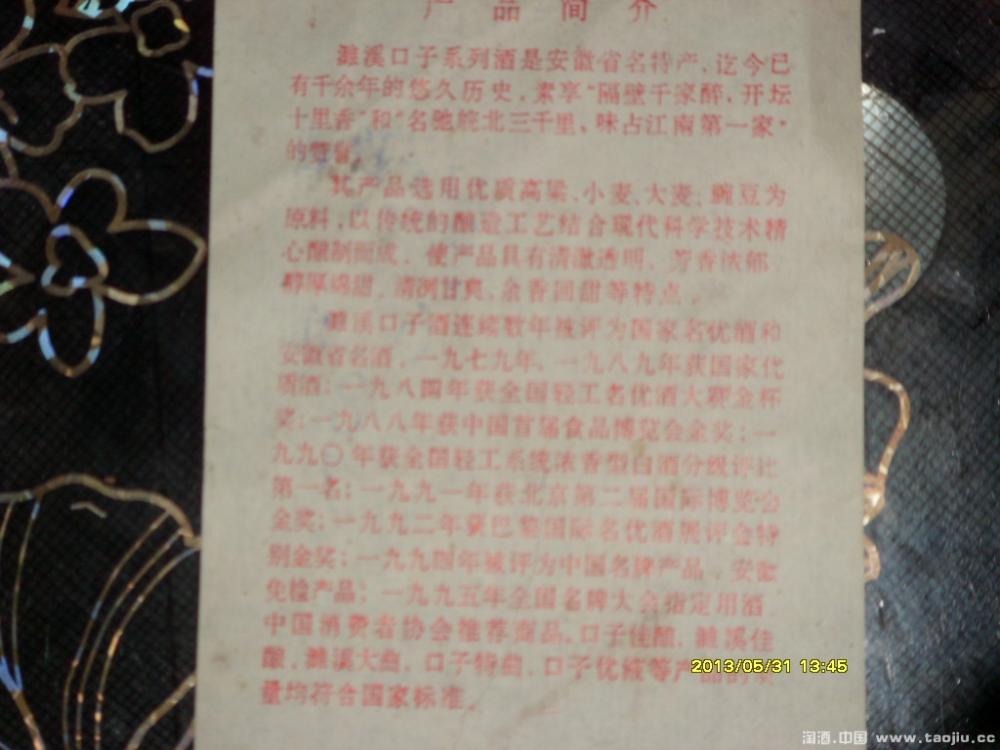 产品简介
濉溪口子系列酒是安徽省名特产、迄今已
有千余年的悠久历史，素享“隔壁千家醉，开坛
十里香”和“名驰皖北三千里，味占江南第一家”
的赞誉。
其产品选用优质高粱、小麦、大麦、豌豆为
原料，以传统的酿造工艺结合现代科学技术精
心酿制而成，使产品具有清澈透明、芳香浓郁、
醇厚绵甜，清洌甘爽，余香回甜等特点。
濉溪口子酒连续数年被评为国家名优酒和
安徽省名酒，一九七九年、一九八九年获国家优
质酒；一九八四年获全国轻工名优酒大赛金杯
奖；一九八八年获中国首届食品博览会金奖；一
九九〇年获全国轻工系统浓香型白酒分级评比
第一名；一九九一年获北京第二届国际博览会
金奖；一九九二年获巴黎国际名优酒展评会特
别金奖；一九九四年被评为中国名牌产品，安徽
免检产品；一九九五年全国名牌大会指定用酒，
中国消费者协会推荐商品。口子佳酿，濉溪佳
酿，濉溪大曲，口子特曲，口子优液等产品的质
量均符合国家标准。
2013/05/31 13:45
淘酒.中国 www.taojiu.cc